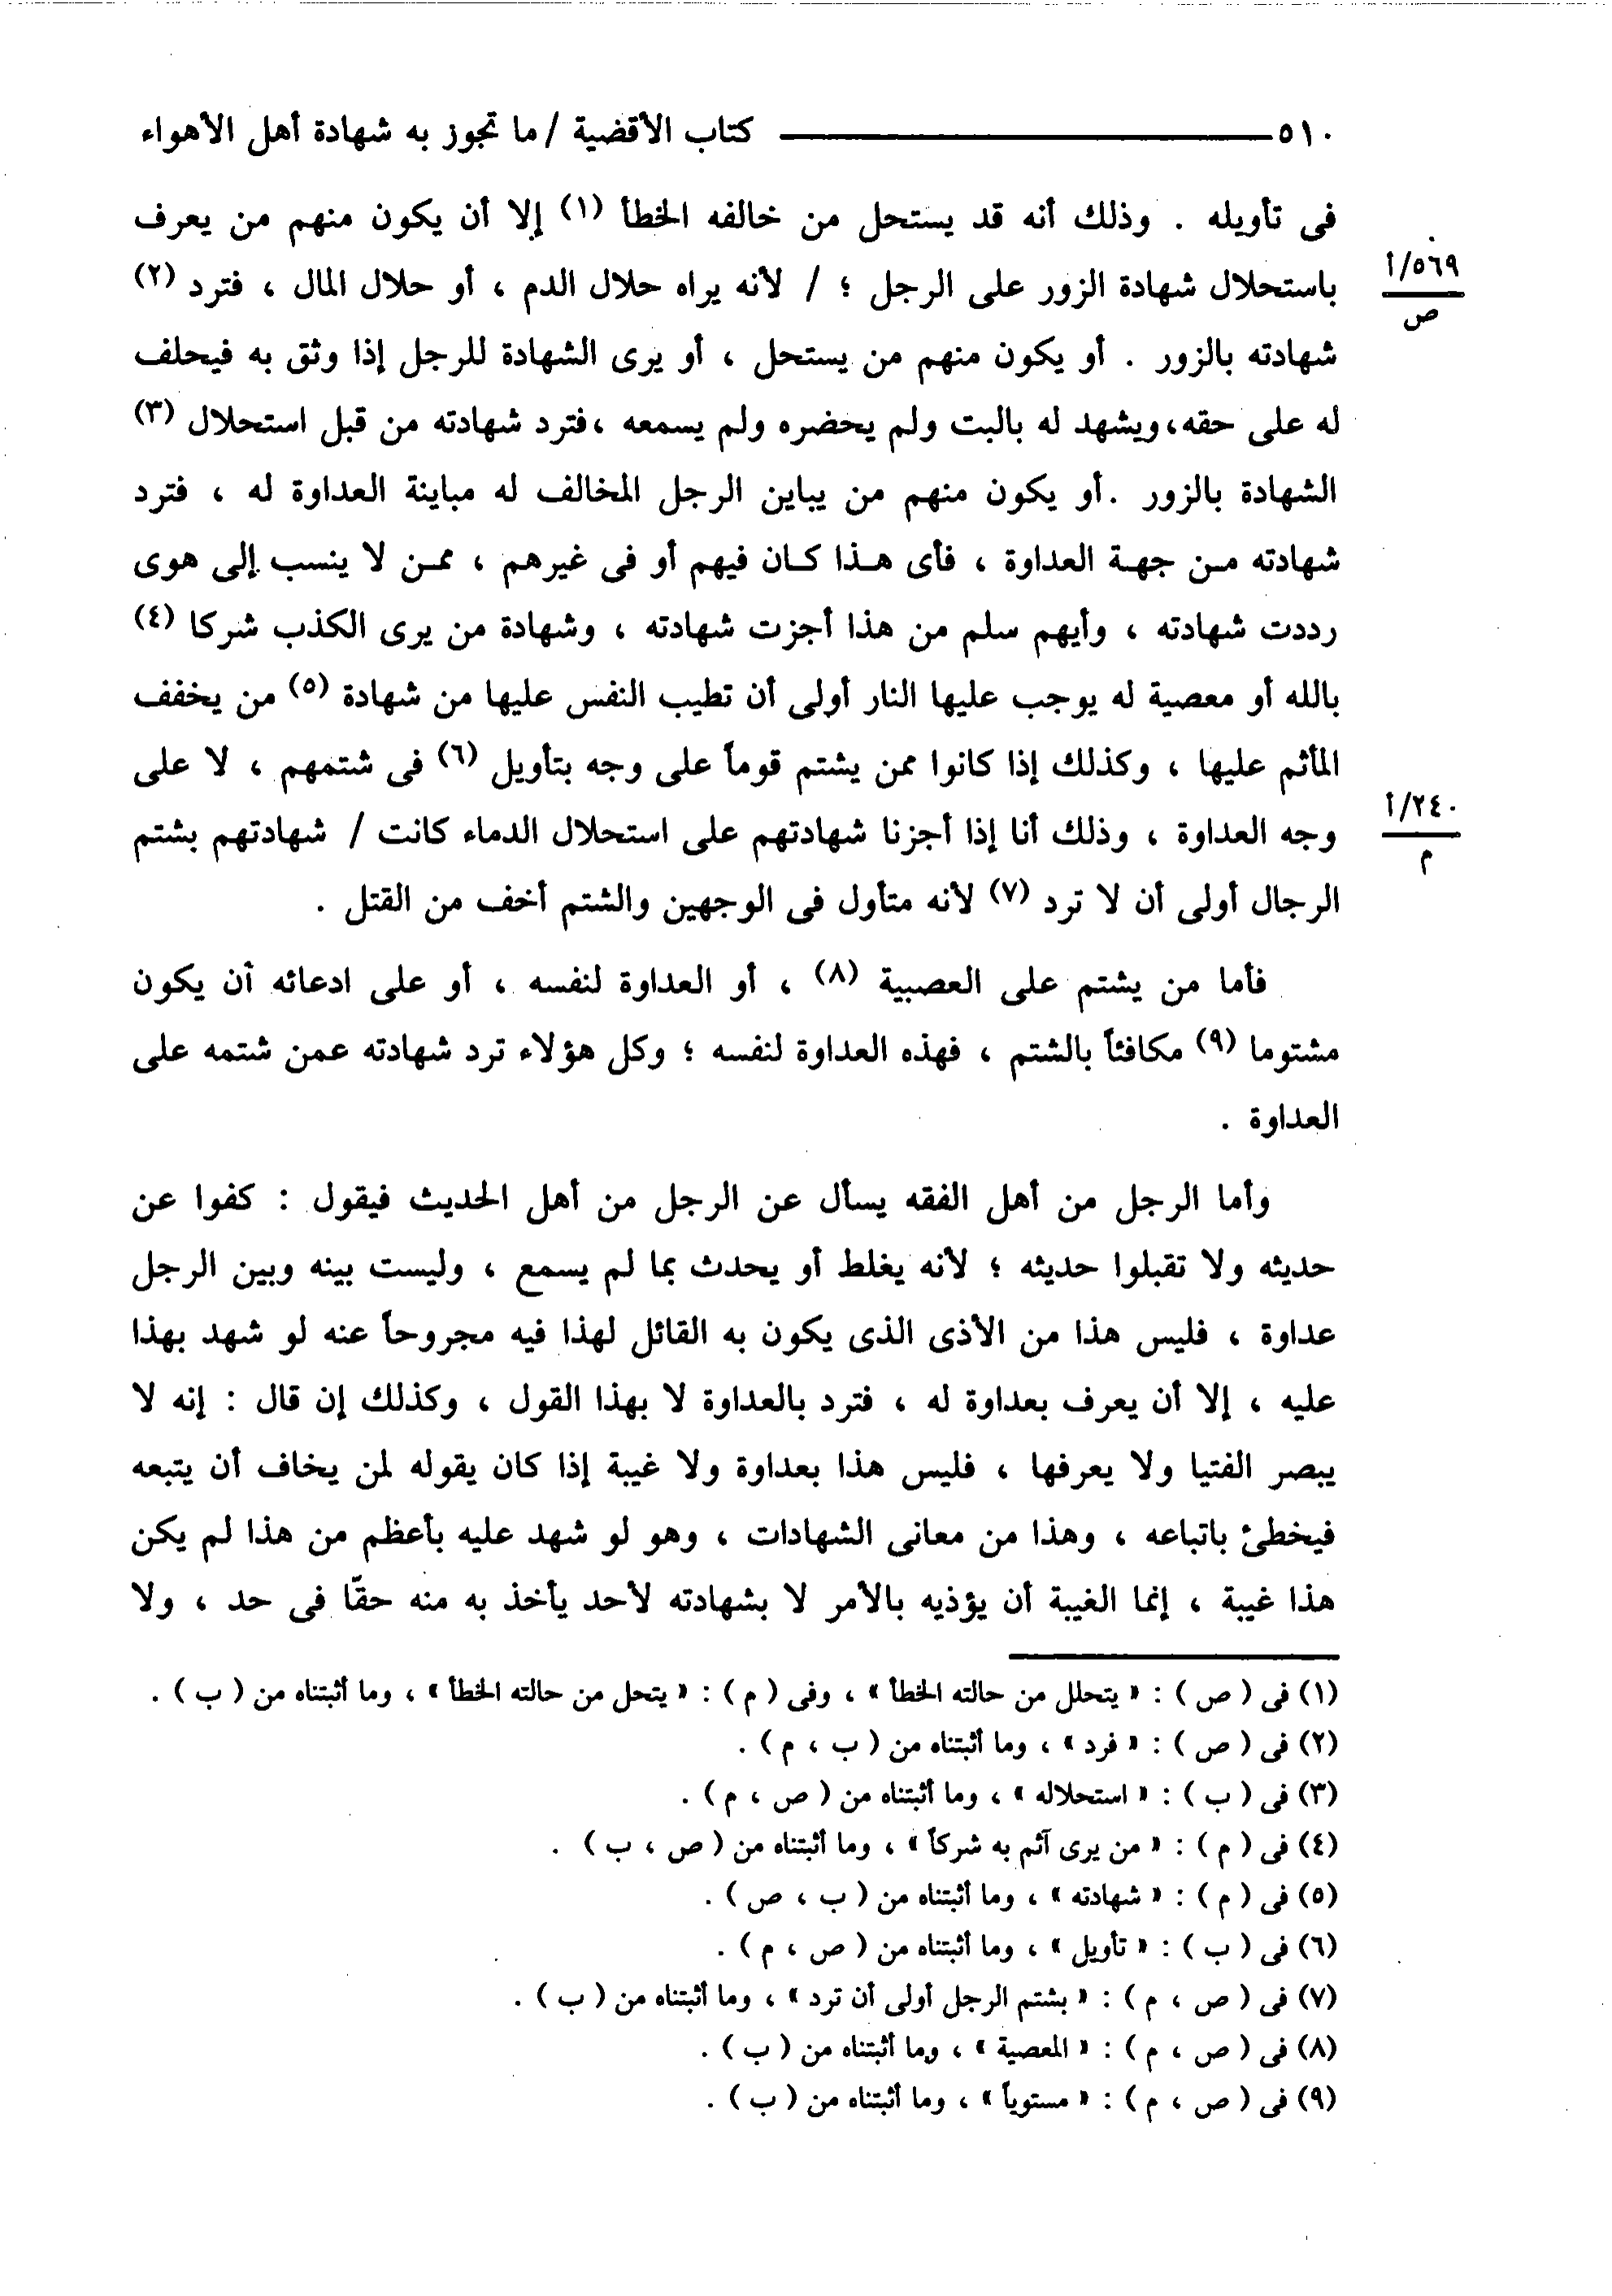 ٥١٠ ــــــــــــــــــــــــــــ كتاب الأقضية / ما تجوز به شهادة أهل الأهواء
فى تأويله . وذلك أنه قد يستحل من خالفه الخطأ (١) إلا أن يكون منهم من يعرف
باستحلال شهادة الزور على الرجل ؛ / لأنه يراه حلال الدم ، أو حلال المال ، فترد (٢)
٥٦٩/أ
ص
شهادته بالزور . أو يكون منهم من يستحل ، أو يرى الشهادة للرجل إذا وثق به فيحلف
له على حقه، ويشهد له بالبت ولم يحضره ولم يسمعه ، فترد شهادته من قبل استحلال (٣)
الشهادة بالزور . أو يكون منهم من يباين الرجل المخالف له مباينة العداوة له ، فترد
شهادته من جهة العداوة ، فأى هذا كان فيهم أو فى غيرهم ، ممن لا ينسب إلى هوى
رددت شهادته ، وأيهم سلم من هذا أجزت شهادته ، وشهادة من يرى الكذب شركا (٤)
بالله أو معصية له يوجب عليها النار أولى أن تطيب النفس عليها من شهادة (٥) من يخفف
المأثم عليها ، وكذلك إذا كانوا ممن يشتم قوماً على وجه بتأويل (٦) فى شتمهم ، لا على
وجه العداوة ، وذلك أنا إذا أجزنا شهادتهم على استحلال الدماء كانت / شهادتهم بشتم
٢٤٠/أ
م
الرجال أولى أن لا ترد (٧) لأنه متأول فى الوجهين والشتم أخف من القتل .
فأما من يشتم على العصبية (٨) ، أو العداوة لنفسه ، أو على ادعائه أن يكون
مشتوما (٩) مكافئاً بالشتم ، فهذه العداوة لنفسه ؛ وكل هؤلاء ترد شهادته عمن شتمه على
العداوة .
وأما الرجل من أهل الفقه يسأل عن الرجل من أهل الحديث فيقول : كفوا عن
حديثه ولا تقبلوا حديثه ؛ لأنه يغلط أو يحدث بما لم يسمع ، وليست بينه وبين الرجل
عداوة ، فليس هذا من الأذى الذى يكون به القائل لهذا فيه مجروحاً عنه لو شهد بهذا
عليه ، إلا أن يعرف بعداوة له ، فترد بالعداوة لا بهذا القول ، وكذلك إن قال : إنه لا
يبصر الفتيا ولا يعرفها ، فليس هذا بعداوة ولا غيبة إذا كان يقوله لمن يخاف أن يتبعه
فيخطئ باتباعه ، وهذا من معانى الشهادات ، وهو لو شهد عليه بأعظم من هذا لم يكن
هذا غيبة ، إنما الغيبة أن يؤذيه بالأمر لا بشهادته لأحد يأخذ به منه حقّا فى حد ، ولا
(١) فى ( ص ) : « يتحلل من حالته الخطأ » ، وفى ( م ) : « يتحل من حالته الخطأ » ، وما أثبتناه من ( ب ) .
(٢) فى ( ص ) : « فرد » ، وما أثبتناه من ( ب ، م ) .
(٣) فى ( ب ) : « استحلاله » ، وما أثبتناه من ( ص ، م ) .
(٤) فى ( م ) : « من يرى آثم به شركاً » ، وما أثبتناه من ( ص ، ب ) .
(٥) فى ( م ) : « شهادته » ، وما أثبتناه من ( ب ، ص ) .
(٦) فى ( ب ) : « تأويل » ، وما أثبتناه من ( ص ، م ) .
(٧) فى ( ص ، م ) : « بشتم الرجل أولى أن ترد » ، وما أثبتناه من ( ب ) .
(٨) فى ( ص ، م ) : « المعصية » ، وما أثبتناه من ( ب ) .
(٩) فى ( ص ، م ) : « مستوياً » ، وما أثبتناه من ( ب ) .